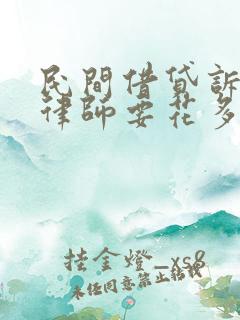 民間借貸訴
律師要花多
挂金燈_xs8
未任同意禁止轉載